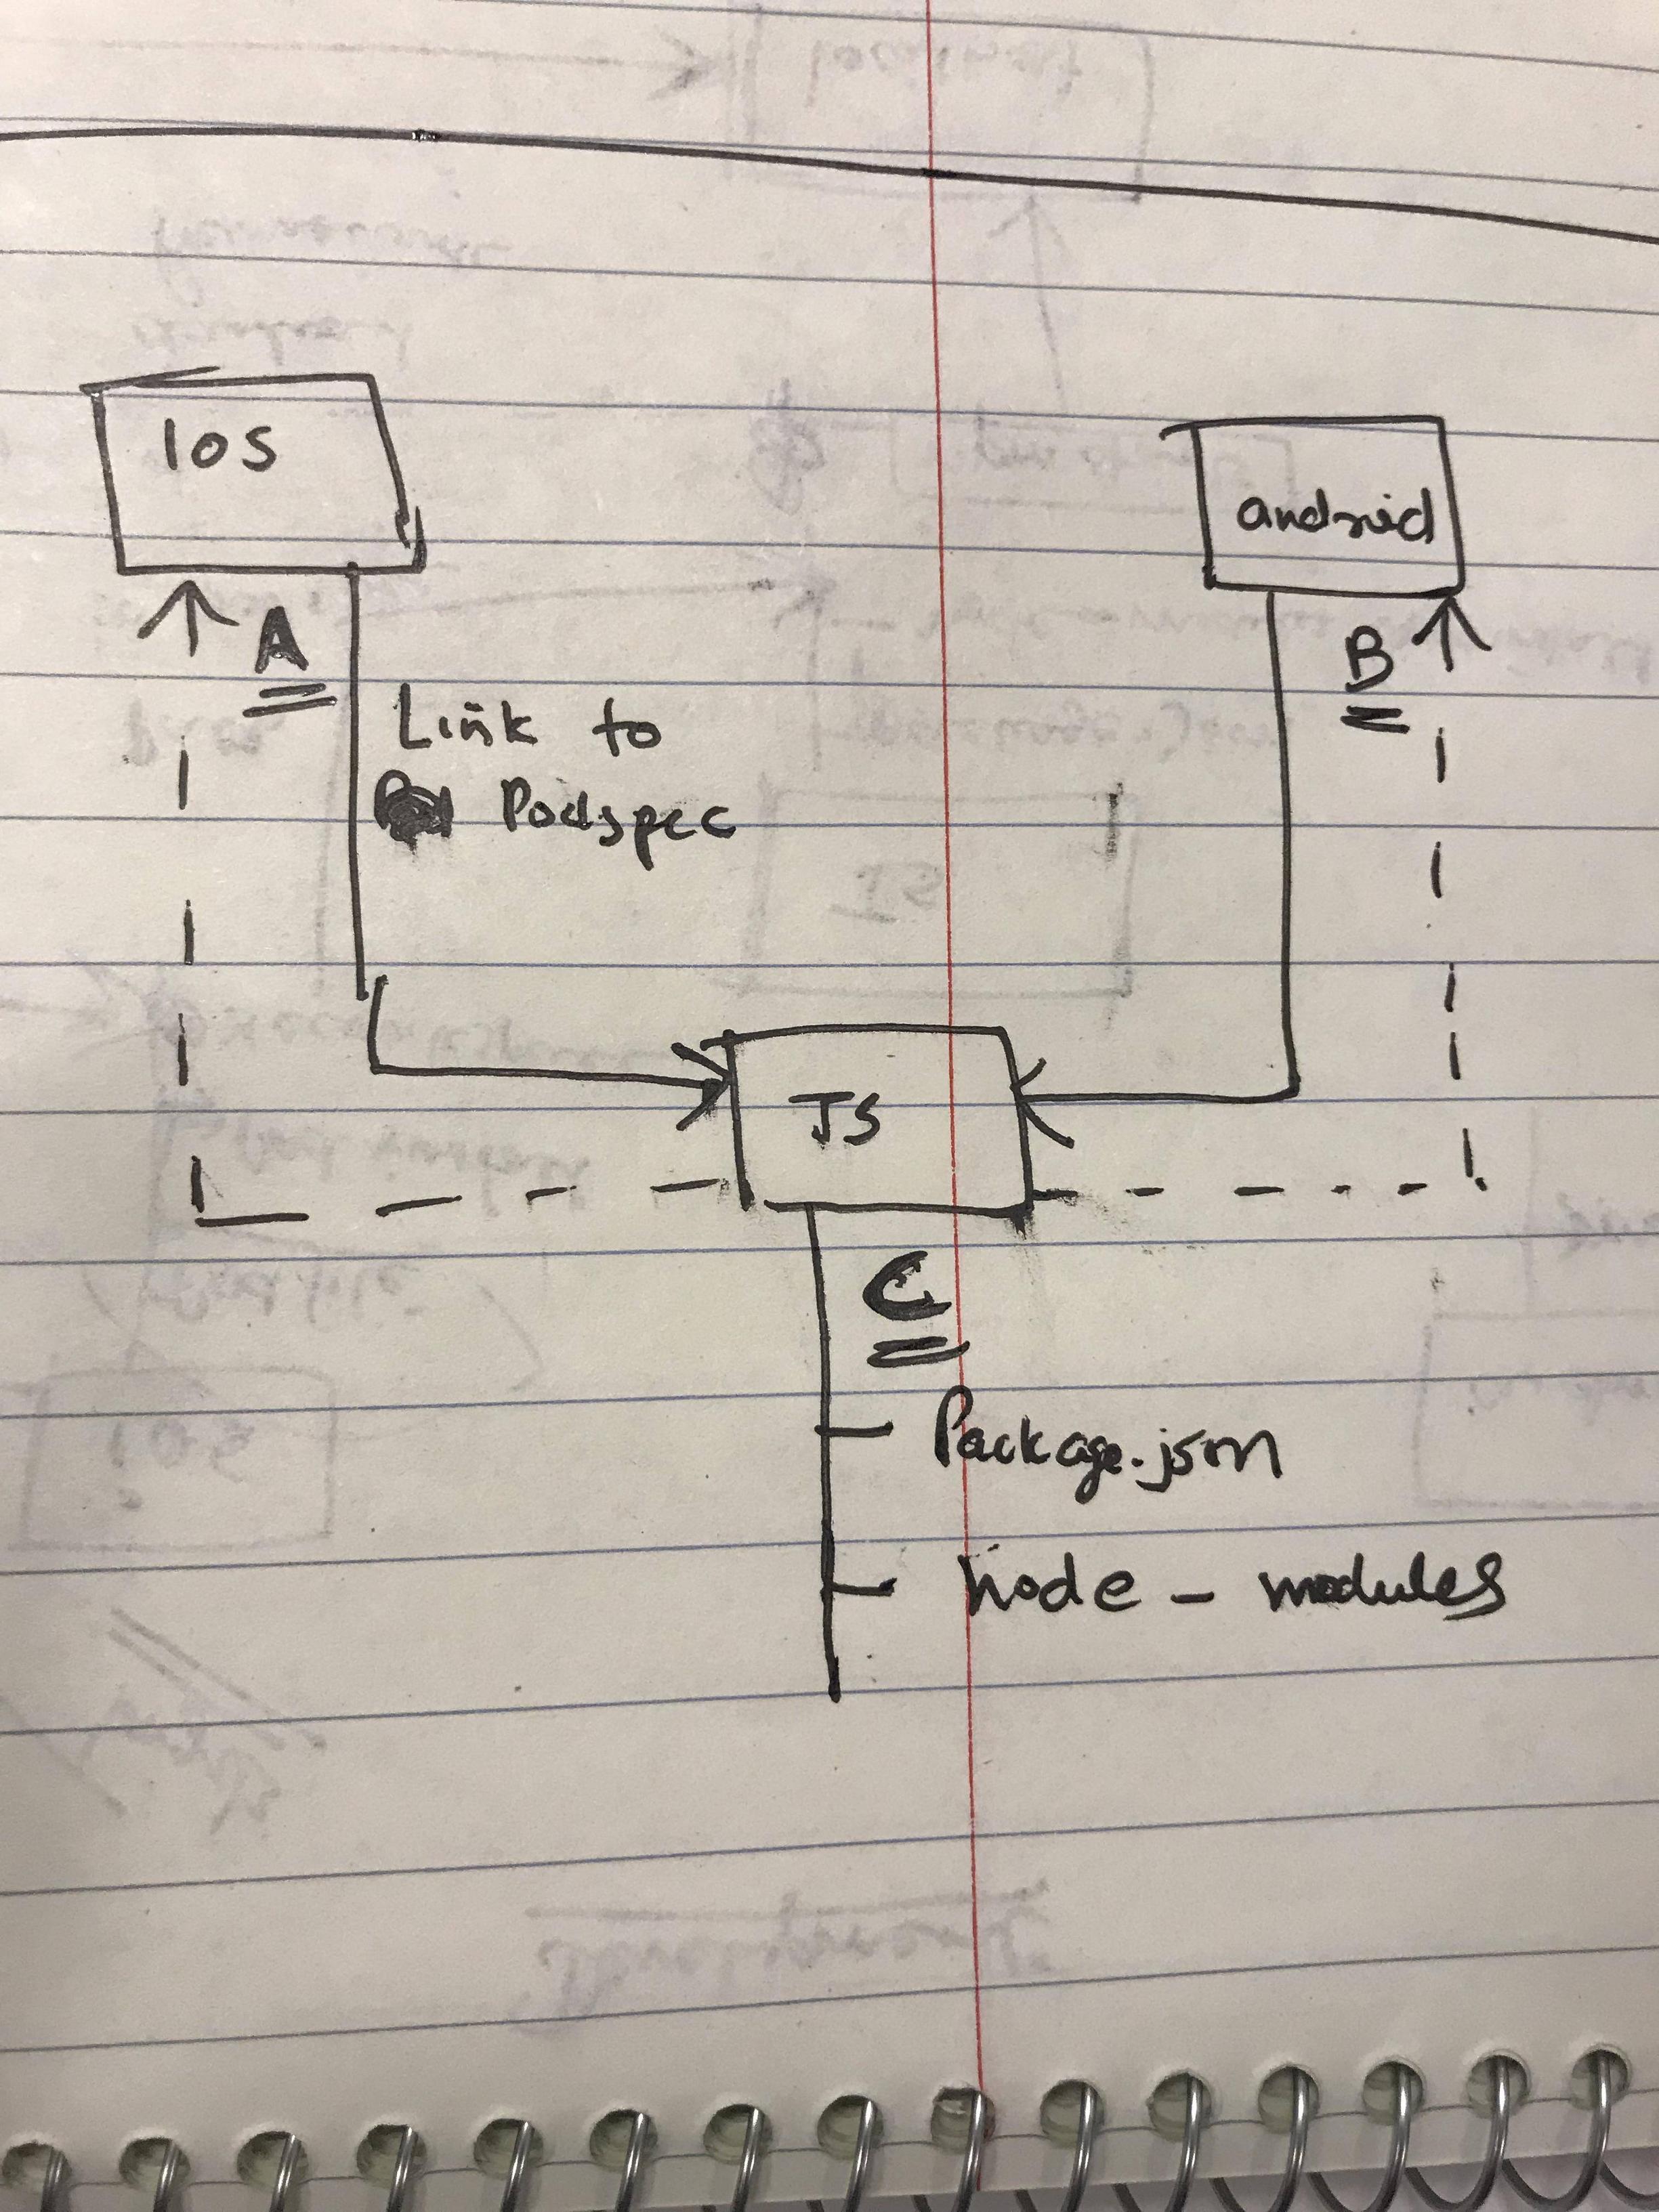 IOS
android
A
B
Link to
Podspec
JS
C
Package.json
node - modules